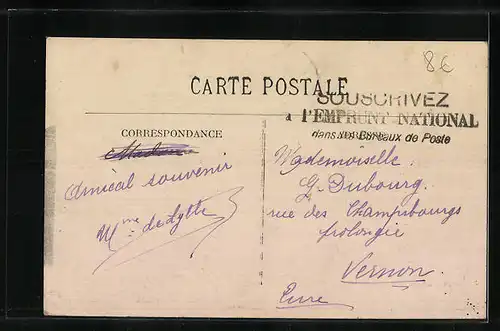 8€
CARTE POSTALE
SOUSCRIVEZ
à l'EMPRUNT NATIONAL
dans les Bureaux de Poste
CORRESPONDANCE
Amical souvenir
Mme de
Mademoiselle
G. Dubourg.
rue des Champbourgs
prolongée
Vernon.
Eure